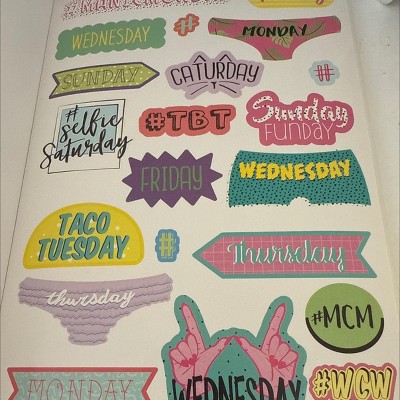 #MANICMONDAY
WEDNESDAY
#
MONDAY
SUNDAY
CATURDAY
#
#
selfie
Saturday
#TBT
Sunday
FUNDAY
FRIDAY
WEDNESDAY
TACO
TUESDAY
#
Thursday
thursday
#MCM
MONDAY
WEDNESDAY
#WCW